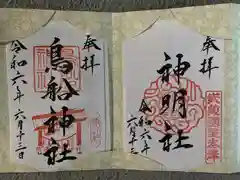 奉拝
鳥船神社
令和六年
六月十三日
奉拝
神明社
令和六年
六月十三日